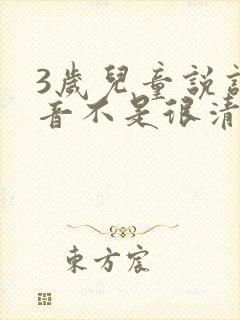 3歲兒童說話
音不是很清
東方宸